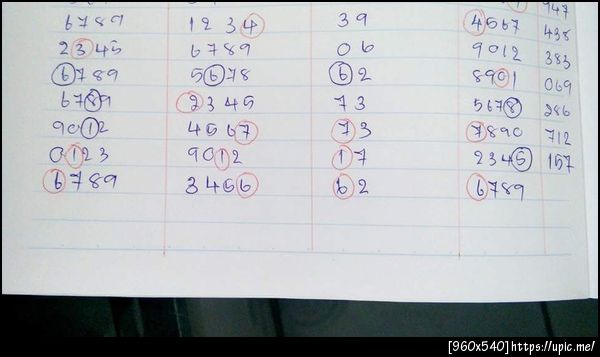 947
6789 1234 39 4567 438
2345 6789 06 9012 383
6789 5678 62 8901 069
6789 2345 73 5678 286
9012 4567 73 7890 712
0123 9012 17 2345 157
6789 3456 62 6789
[960x540]https://upic.me/